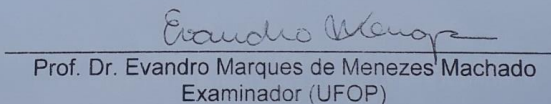 Evandro Menezes
Prof. Dr. Evandro Marques de Menezes Machado
Examinador (UFOP)